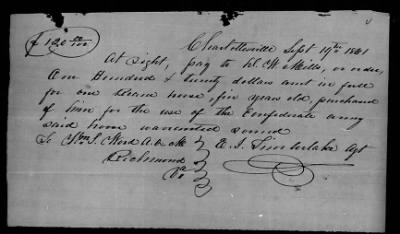 $ 120 00/100
Charlottesville Sept 19th 1861
At Sight, pay to W. W. Mills, or order,
One Hundred & twenty dollars amt in full
for one horse five years old, purchased
of him for the use of the Confederate army
said horse warranted sound
To Wm. S. Wood A. Q. M. E. J. Timberlake Agt
Richmond
Va